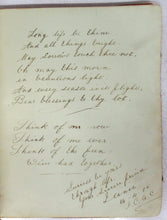 Long life be thine
And all things bright
May sorrows touch thee not.
Oh may thy morn
in beauteous light
And every season in its flight
Bear blessings to thy lot.
Think of me now
Think of me ever
Think of the fun
We've had together.
Sincerely your
friend